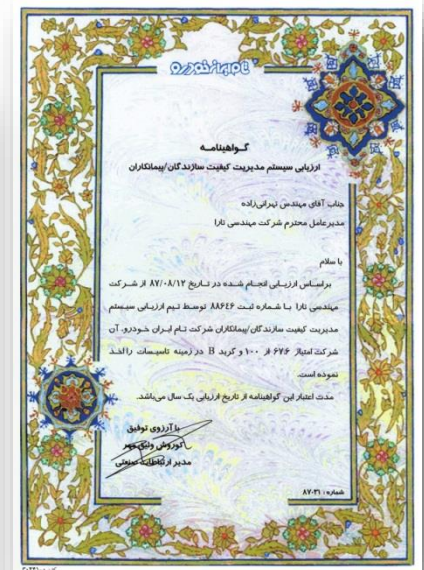 تام ایران خودرو
گـواهینامـه
ارزیابی سیستم مدیریت کیفیت سازندگان/پیمانکاران
جناب آقای مهندس تهرانی‌زاده
مدیرعامل محترم شرکت مهندسی تارا
با سلام
براساس ارزیابی انجام شده در تاریخ ۸۷/۰۸/۱۲ از شرکت
مهندسی تارا با شماره ثبت ۸۸۶٤۶ توسط تیم ارزیابی سیستم
مدیریت کیفیت سازندگان/پیمانکاران شرکت تام ایران خودرو، آن
شرکت امتیاز ۶۷/۶ از ۱۰۰ و گرید B در زمینه تاسیسات را اخذ
نموده است.
مدت اعتبار این گواهینامه از تاریخ ارزیابی یک سال می‌باشد.
با آرزوی توفیق
کوروش وثیق مهر
مدیر ارتباطات صنعتی
شماره : ۸۷-۳۱